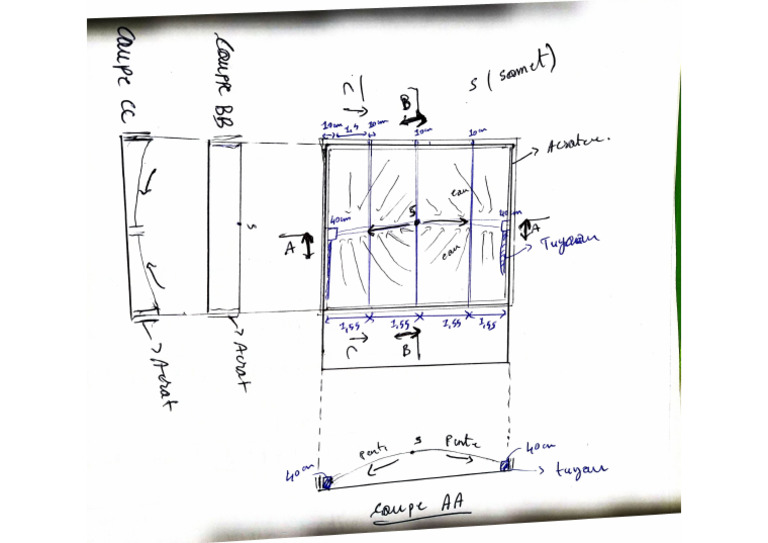 S (somet)
C
B
10cm 1,5 10cm 10cm 10cm
eau
40cm S 40cm
A A
Tuyau
eau
1,55 1,55 1,55 1,55
C B
COUPE CC
COUPE BB
S
Acrot
Acrot
Pente S Pente
40cm 40cm
tuyau
coupe AA